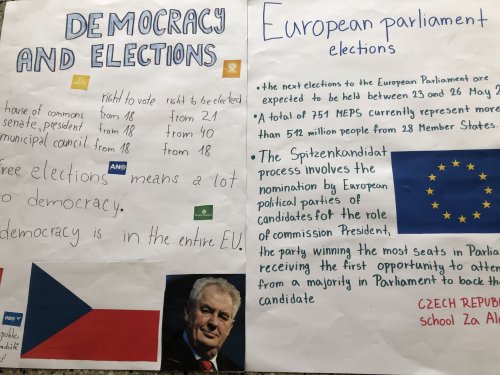 DEMOCRACY
AND ELECTIONS
right to vote right to be elected
house of commons from 18 from 21
senate, president from 18 from 40
municipal council from 18 from 18
free elections means a lot
to democracy.
democracy is in the entire EU.
ANO
ODS
European parliament
elections
• the next elections to the European Parliament are
expected to be held between 23 and 26 May 2
• A total of 751 MEPS currently represent more
than 512 million people from 28 Member States.
• The Spitzenkandidat
process involves the
nomination by European
political parties of
candidates for the role
of commission President,
the party winning the most seats in Parlia
receiving the first opportunity to atte
from a majority in Parliament to back th
candidate
CZECH REPUB
school Za Al